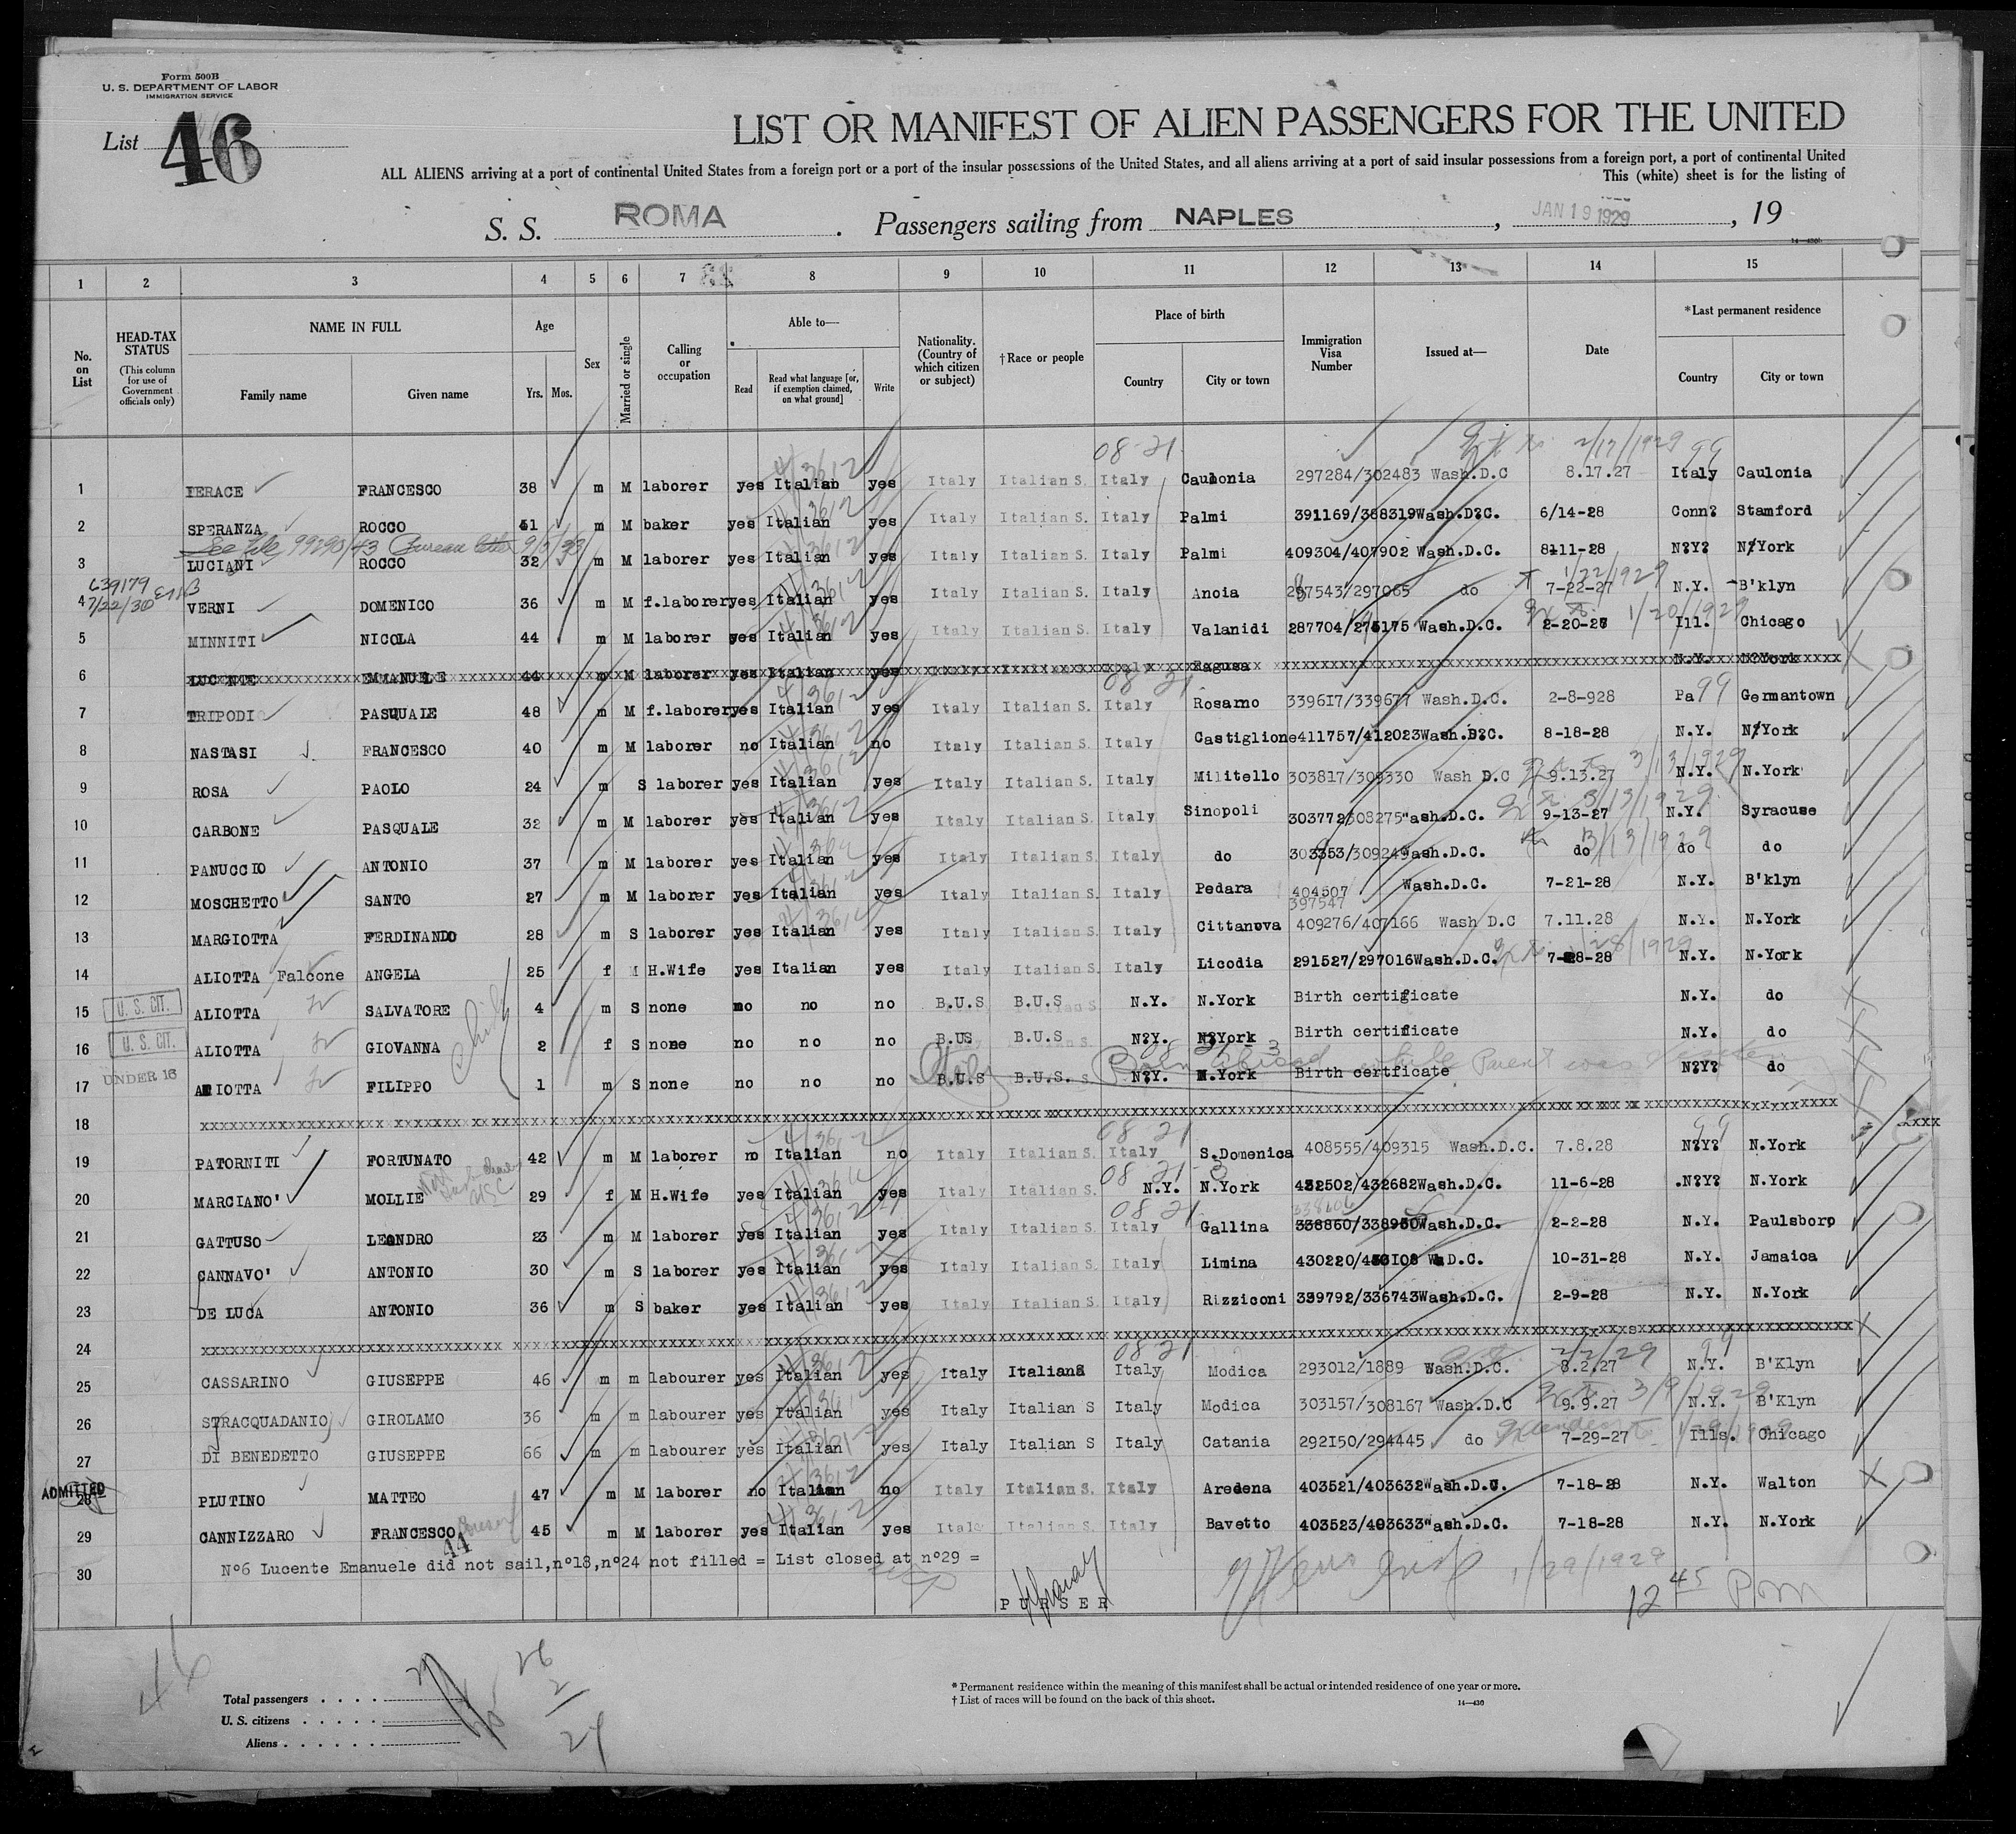 Form 500B
U. S. DEPARTMENT OF LABOR
IMMIGRATION SERVICE
List 46
LIST OR MANIFEST OF ALIEN PASSENGERS FOR THE UNITED
ALL ALIENS arriving at a port of continental United States from a foreign port or a port of the insular possessions of the United States, and all aliens arriving at a port of said insular possessions from a foreign port, a port of continental United
This (white) sheet is for the listing of
S. S. ROMA. Passengers sailing from NAPLES, JAN 19 1929, 19
14—4301
1 2 3 4 5 6 7 8 9 10 11 12 13 14 15
No. on List
HEAD-TAX STATUS (This column for use of Government officials only)
NAME IN FULL Family name Given name
Age Yrs. Mos.
Sex
Married or single
Calling or occupation
Able to— Read Read what language [or, if exemption claimed, on what ground] Write
Nationality. (Country of which citizen or subject)
†Race or people
Place of birth Country City or town
Immigration Visa Number
Issued at—
Date
*Last permanent residence Country City or town
08-21 2/17/1929 99
1 IERACE FRANCESCO 38 m M laborer yes Italian yes Italy Italian S. Italy Caulonia 297284/302483 Wash.D.C 8.17.27 Italy Caulonia
2 SPERANZA ROCCO 51 m M baker yes Italian yes Italy Italian S. Italy Palmi 391169/388319Wash.D?C. 6/14-28 Conn? Stamford
See file 99290/43 Bureau letter 9/5/33
3 LUCIANI ROCCO 32 m M laborer yes Italian yes Italy Italian S. Italy Palmi 409304/407902 Wash.D.C. 8-11-28 N?Y? N/York
639179 7/22/30
4 VERNI DOMENICO 36 m M f.laborer yes Italian yes Italy Italian S. Italy Anoia 297543/297065 do 7-22-27 1/22/1929 N.Y. B'klyn
5 MINNITI NICOLA 44 m M laborer yes Italian yes Italy Italian S. Italy Valanidi 287704/275175 Wash.D.C. 2-20-28 1/20/1929 Ill. Chicago
6 LUCENTE EMMANUELE 44 m M laborer yes Italian yes Italy Italian S. Italy Ragusa N.Y. N?York
08 21 99
7 TRIPODI PASQUALE 48 m M f.laborer yes Italian yes Italy Italian S. Italy Rosarno 339617/339677 Wash.D.C. 2-8-928 Pa Germantown
8 NASTASI FRANCESCO 40 m M laborer no Italian no Italy Italian S. Italy Castiglione 411757/412023Wash.D?C. 8-18-28 N.Y. N/York
9 ROSA PAOLO 24 m S laborer yes Italian yes Italy Italian S. Italy Militello 303817/309330 Wash D.C 9.13.27 3/13/1929 N.Y. N.York
10 CARBONE PASQUALE 32 m M laborer yes Italian yes Italy Italian S. Italy Sinopoli 303772/308275"ash.D.C. 9-13-27 3/13/1929 N.Y. Syracuse
11 PANUCCIO ANTONIO 37 m M laborer yes Italian yes Italy Italian S. Italy do 303353/309249"ash.D.C. do 3/13/1929 do do
12 MOSCHETTO SANTO 27 m M laborer yes Italian yes Italy Italian S. Italy Pedara 404507 397547 Wash.D.C. 7-21-28 N.Y. B'klyn
13 MARGIOTTA FERDINANDO 28 m S laborer yes Italian yes Italy Italian S. Italy Cittanova 409276/407166 Wash D.C 7.11.28 N.Y. N.York
14 ALIOTTA Falcone ANGELA 25 f M H.Wife yes Italian yes Italy Italian S. Italy Licodia 291527/297016Wash.D.C. 7-28-28 1/28/1929 N.Y. N.York
15 U. S. CIT. ALIOTTA SALVATORE 4 m S none no no no B.U.S B.U.S N.Y. N.York Birth certificate N.Y. do
16 U. S. CIT. ALIOTTA GIOVANNA 2 f S none no no no B.US B.U.S N?Y. N?York Birth certificate N.Y. do
Italy Born abroad while Parent was
17 UNDER 16 ALIOTTA FILIPPO 1 m S none no no no B.U.S B.U.S. N?Y. N.York Birth certficate N?Y? do
18 xxxxxxxxxxxxxxxxxxxxxxxxxxxxxxxx
08 21 99
19 PATORNITI FORTUNATO 42 m M laborer no Italian no Italy Italian S. Italy S.Domenica 408555/409315 Wash.D.C. 7.8.28 N?Y? N.York
08 21 3
20 MARCIANO' MOLLIE 29 f M H.Wife yes Italian yes Italy Italian S. N.Y. N.York 432502/432682Wash.D.C. 11-6-28 .N?Y? N.York
08 21 338606
21 GATTUSO LEANDRO 23 m M laborer yes Italian yes Italy Italian S. Italy Gallina 338860/338950Wash.D.C. 2-2-28 N.Y. Paulsboro
22 CANNAVO' ANTONIO 30 m S laborer yes Italian yes Italy Italian S. Italy Limina 430220/430108 W D.C. 10-31-28 N.Y. Jamaica
23 DE LUCA ANTONIO 36 m S baker yes Italian yes Italy Italian S. Italy Rizziconi 339792/336743Wash.D.C. 2-9-28 N.Y. N.York
24 xxxxxxxxxxxxxxxxxxxxxxxxxxxxxxxx
08 21 2/2/29 99
25 CASSARINO GIUSEPPE 46 m m labourer yes Italian yes Italy ItalianS Italy Modica 293012/1889 Wash.D.C. 8.2.27 N.Y. B'Klyn
26 STRACQUADANIO GIROLAMO 36 m m labourer yes Italian yes Italy Italian S Italy Modica 303157/308167 Wash.D.C 9.9.27 3/9/1929 N.Y. B'Klyn
27 DI BENEDETTO GIUSEPPE 66 m m labourer yes Italian yes Italy Italian S Italy Catania 292150/294445 do 7-29-27 1/29/1929 Ills. Chicago
ADMITTED
28 PLUTINO MATTEO 47 m M laborer no Italian no Italy Italian S. Italy Aredena 403521/403632Wash.D.C. 7-18-28 N.Y. Walton
29 CANNIZZARO FRANCESCO 45 m M laborer yes Italian yes Italy Italian S. Italy Bavetto 403523/403633"ash.D.C. 7-18-28 N.Y. N.York
44
30 N°6 Lucente Emanuele did not sail,n°18,n°24 not filled = List closed at n°29 =
1/29/1929
PURSER
12 45 Pm
46
26
2
Total passengers
U. S. citizens
Aliens
* Permanent residence within the meaning of this manifest shall be actual or intended residence of one year or more.
† List of races will be found on the back of this sheet.
14—430